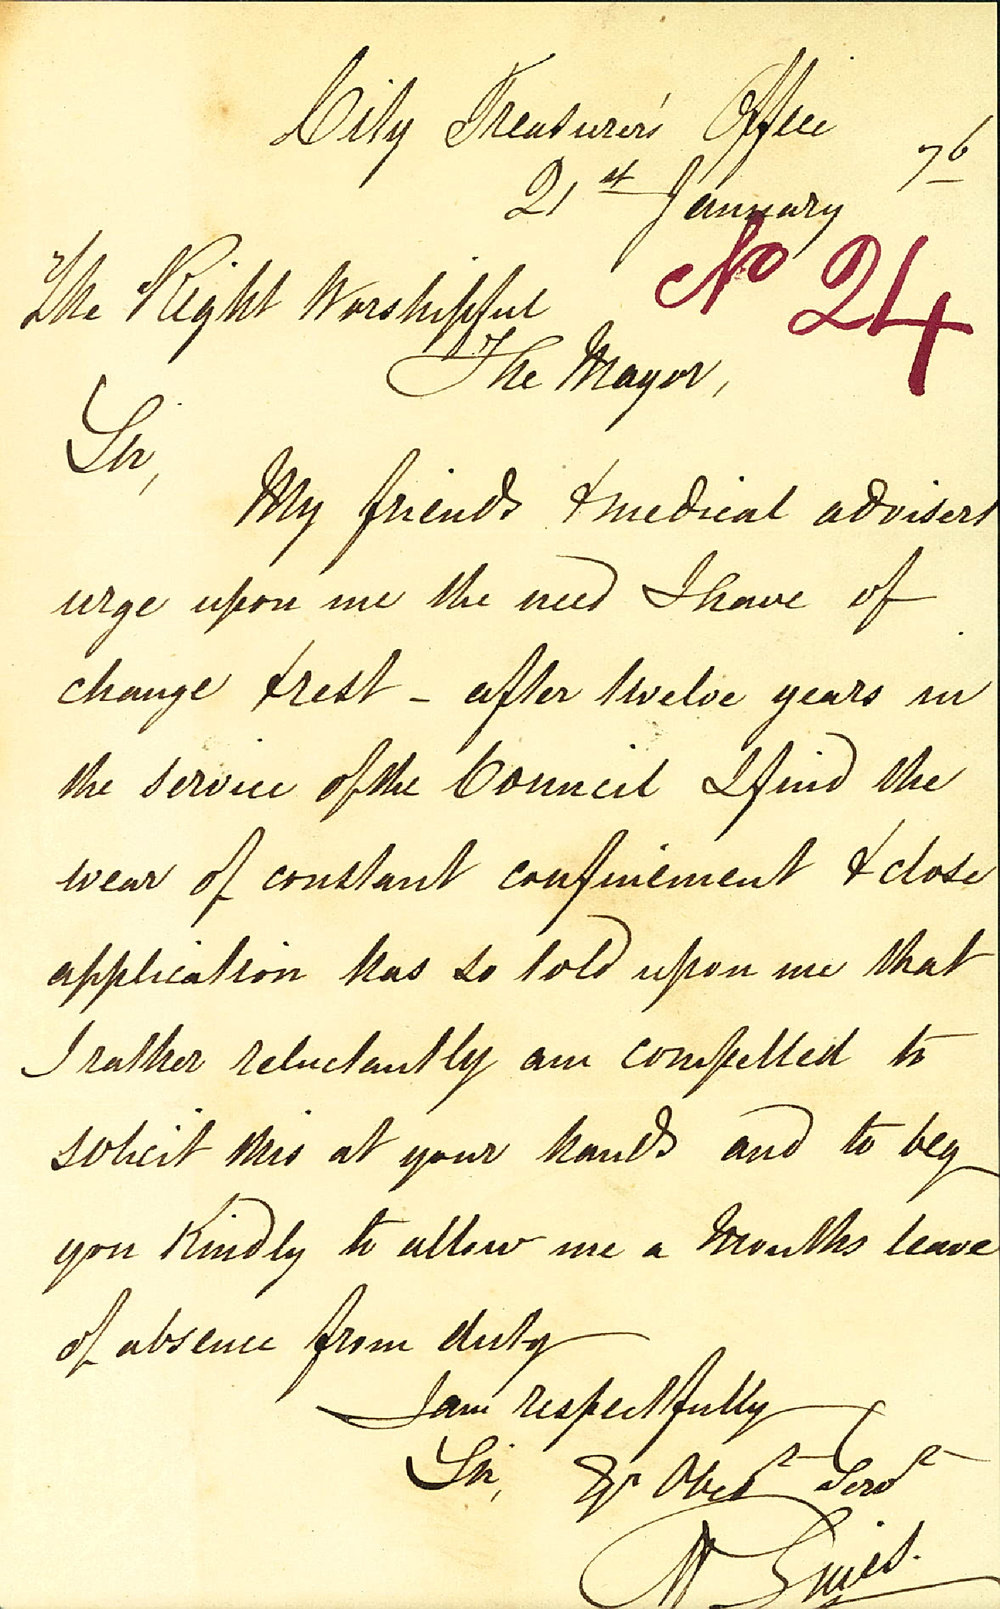 City Treasurer's Office
21st January 76
No 24
The Right Worshipful
The Mayor,
Sir,
My friends & medical advisers
urge upon me the need I have of
change & rest - after twelve years in
the service of the Council I find the
wear of constant confinement & close
application has so told upon me that
I rather reluctantly am compelled to
solicit this at your hands and to beg
you kindly to allow me a months leave
of absence from duty
I am respectfully
Sir, Yr Obedt Servt